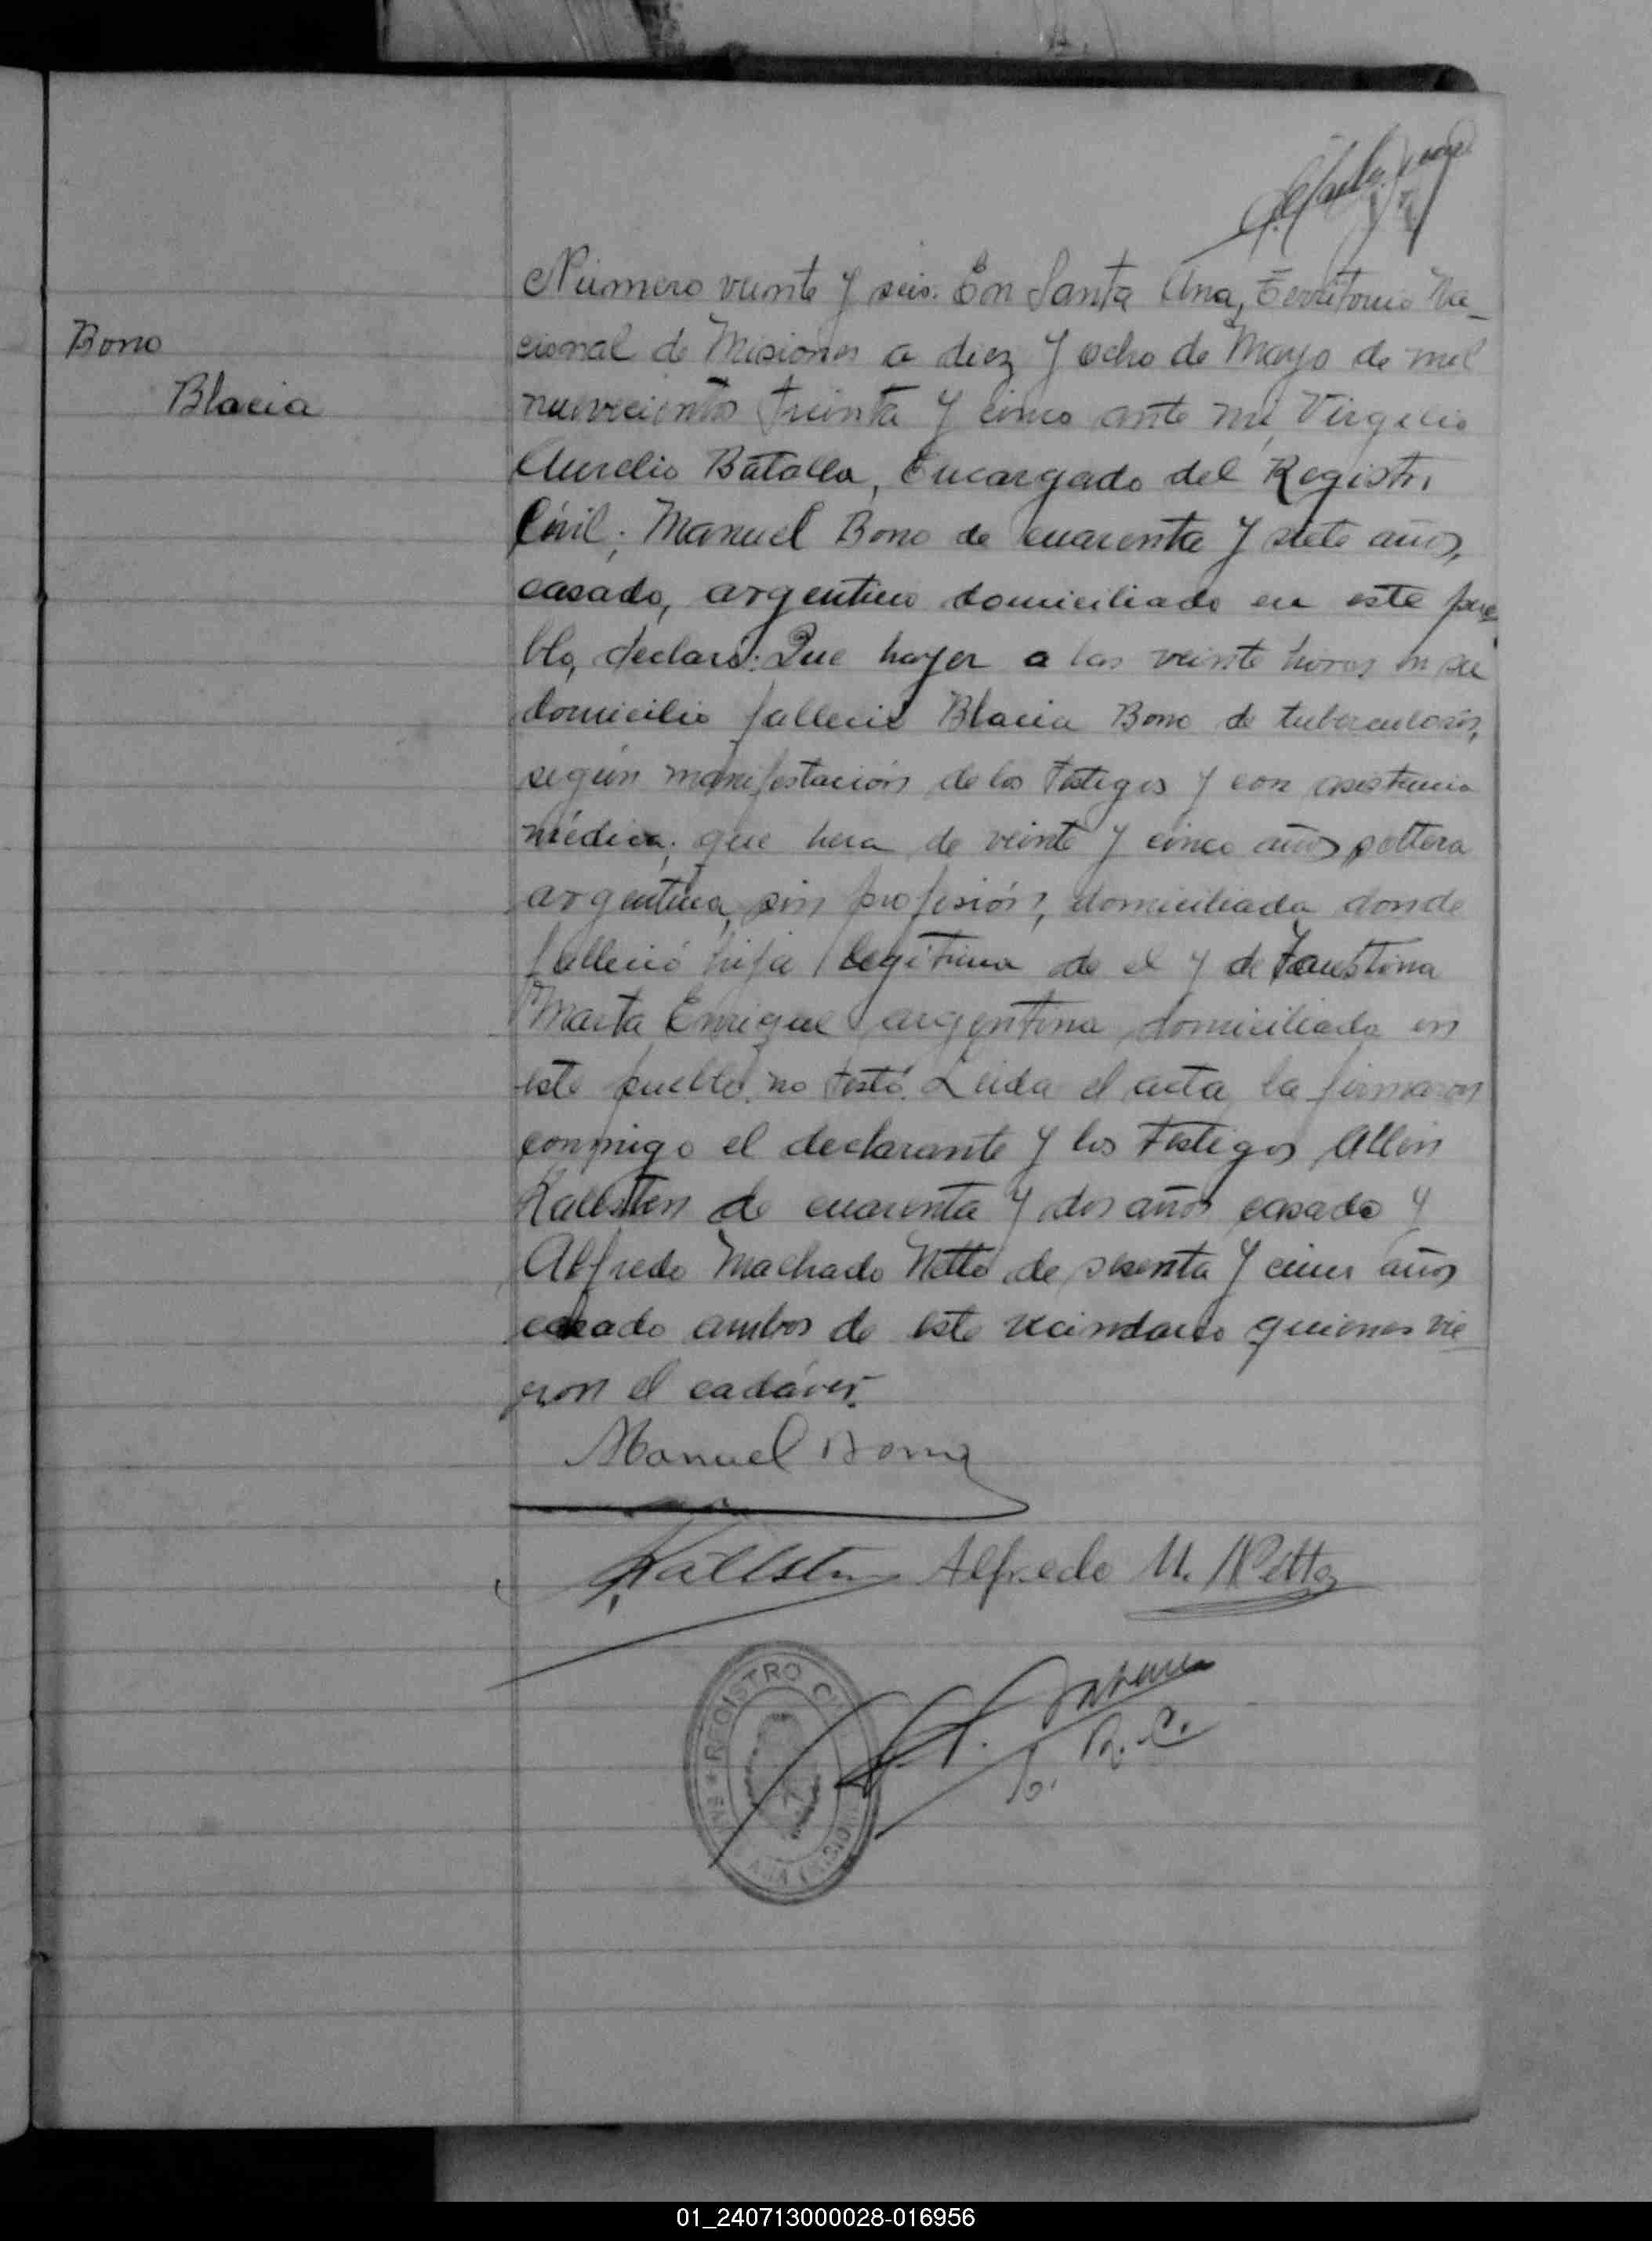 Bono
Blacia
Número veinte y seis. En Santa Ana, Territorio Na-
cional de Misiones a diez y ocho de Mayo de mil
nuevecientos treinta y cinco ante mi, Virgilio
Aurelio Batalla, Encargado del Registro
Civil; Manuel Bono de cuarenta y siete años,
casado, argentino domiciliado en este pue
blo, declaró: Que hayer a las veinte horas en su
domicilio falleció Blacia Bono de tuberculosis,
según manifestación de los testigos y con asistencia
médica; que hera de veinte y cinco años soltera
argentina, sin profesión, domiciliada donde
falleció hija legítima de el y de Faustina
Marta Enrique argentina domiciliada en
este pueblo. no testó. Leida el acta la firmaron
conmigo el declarante y los testigos
Kallsten de cuarenta y dos años casado y
Alfredo Machado Netto de sesenta y cinco años
casado ambos de este vecindario quienes vie
ron el cadáver.
Manuel Bono
Kallsten Alfredo M. Netto
REGISTRO
R. C.
01_240713000028-016956